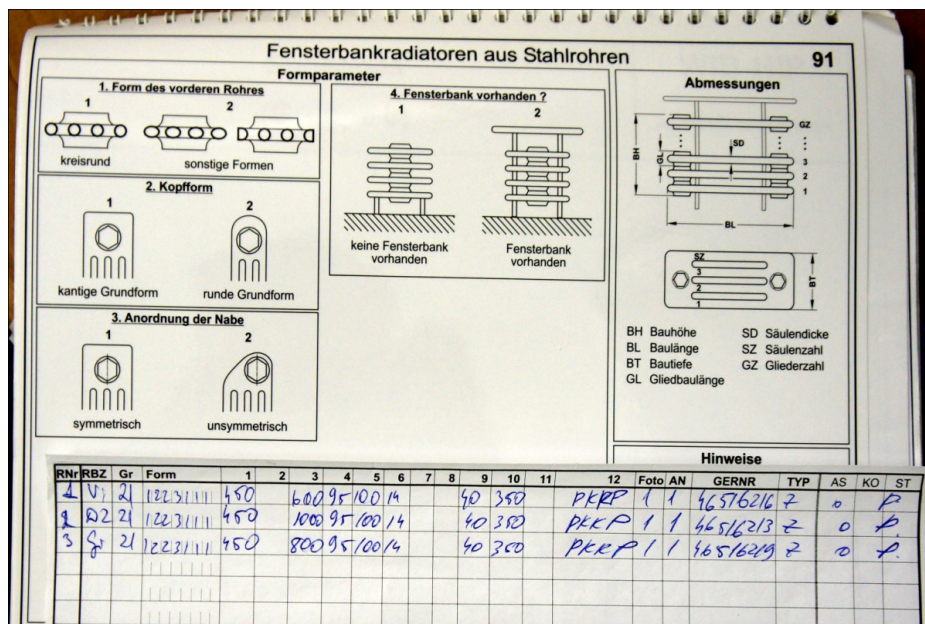 Fensterbankradiatoren aus Stahlrohren
91
Formparameter
1. Form des vorderen Rohres
1 2
kreisrund
sonstige Formen
2. Kopfform
1 2
kantige Grundform
runde Grundform
3. Anordnung der Nabe
1 2
symmetrisch
unsymmetrisch
4. Fensterbank vorhanden ?
1 2
keine Fensterbank
vorhanden
Fensterbank
vorhanden
Abmessungen
GZ
SD
BH
GL
3
2
1
BL
SZ
3
2
1
BT
BH Bauhöhe SD Säulendicke
BL Baulänge SZ Säulenzahl
BT Bautiefe GZ Gliederzahl
GL Gliedbaulänge
Hinweise
RNr RBZ Gr Form 1 2 3 4 5 6 7 8 9 10 11 12 Foto AN GERNR TYP AS KO ST
1 Vi 21 12231111 450 600 95 100 14 40 350 PKRP 1 1 46516216 Z 0 P.
2 DZ 21 12231111 450 1000 95 100 14 40 350 PKKP 1 1 46516213 Z 0 P.
3 Gr 21 12231111 450 800 95 100 14 40 350 PKKP 1 1 46516219 Z 0 P.